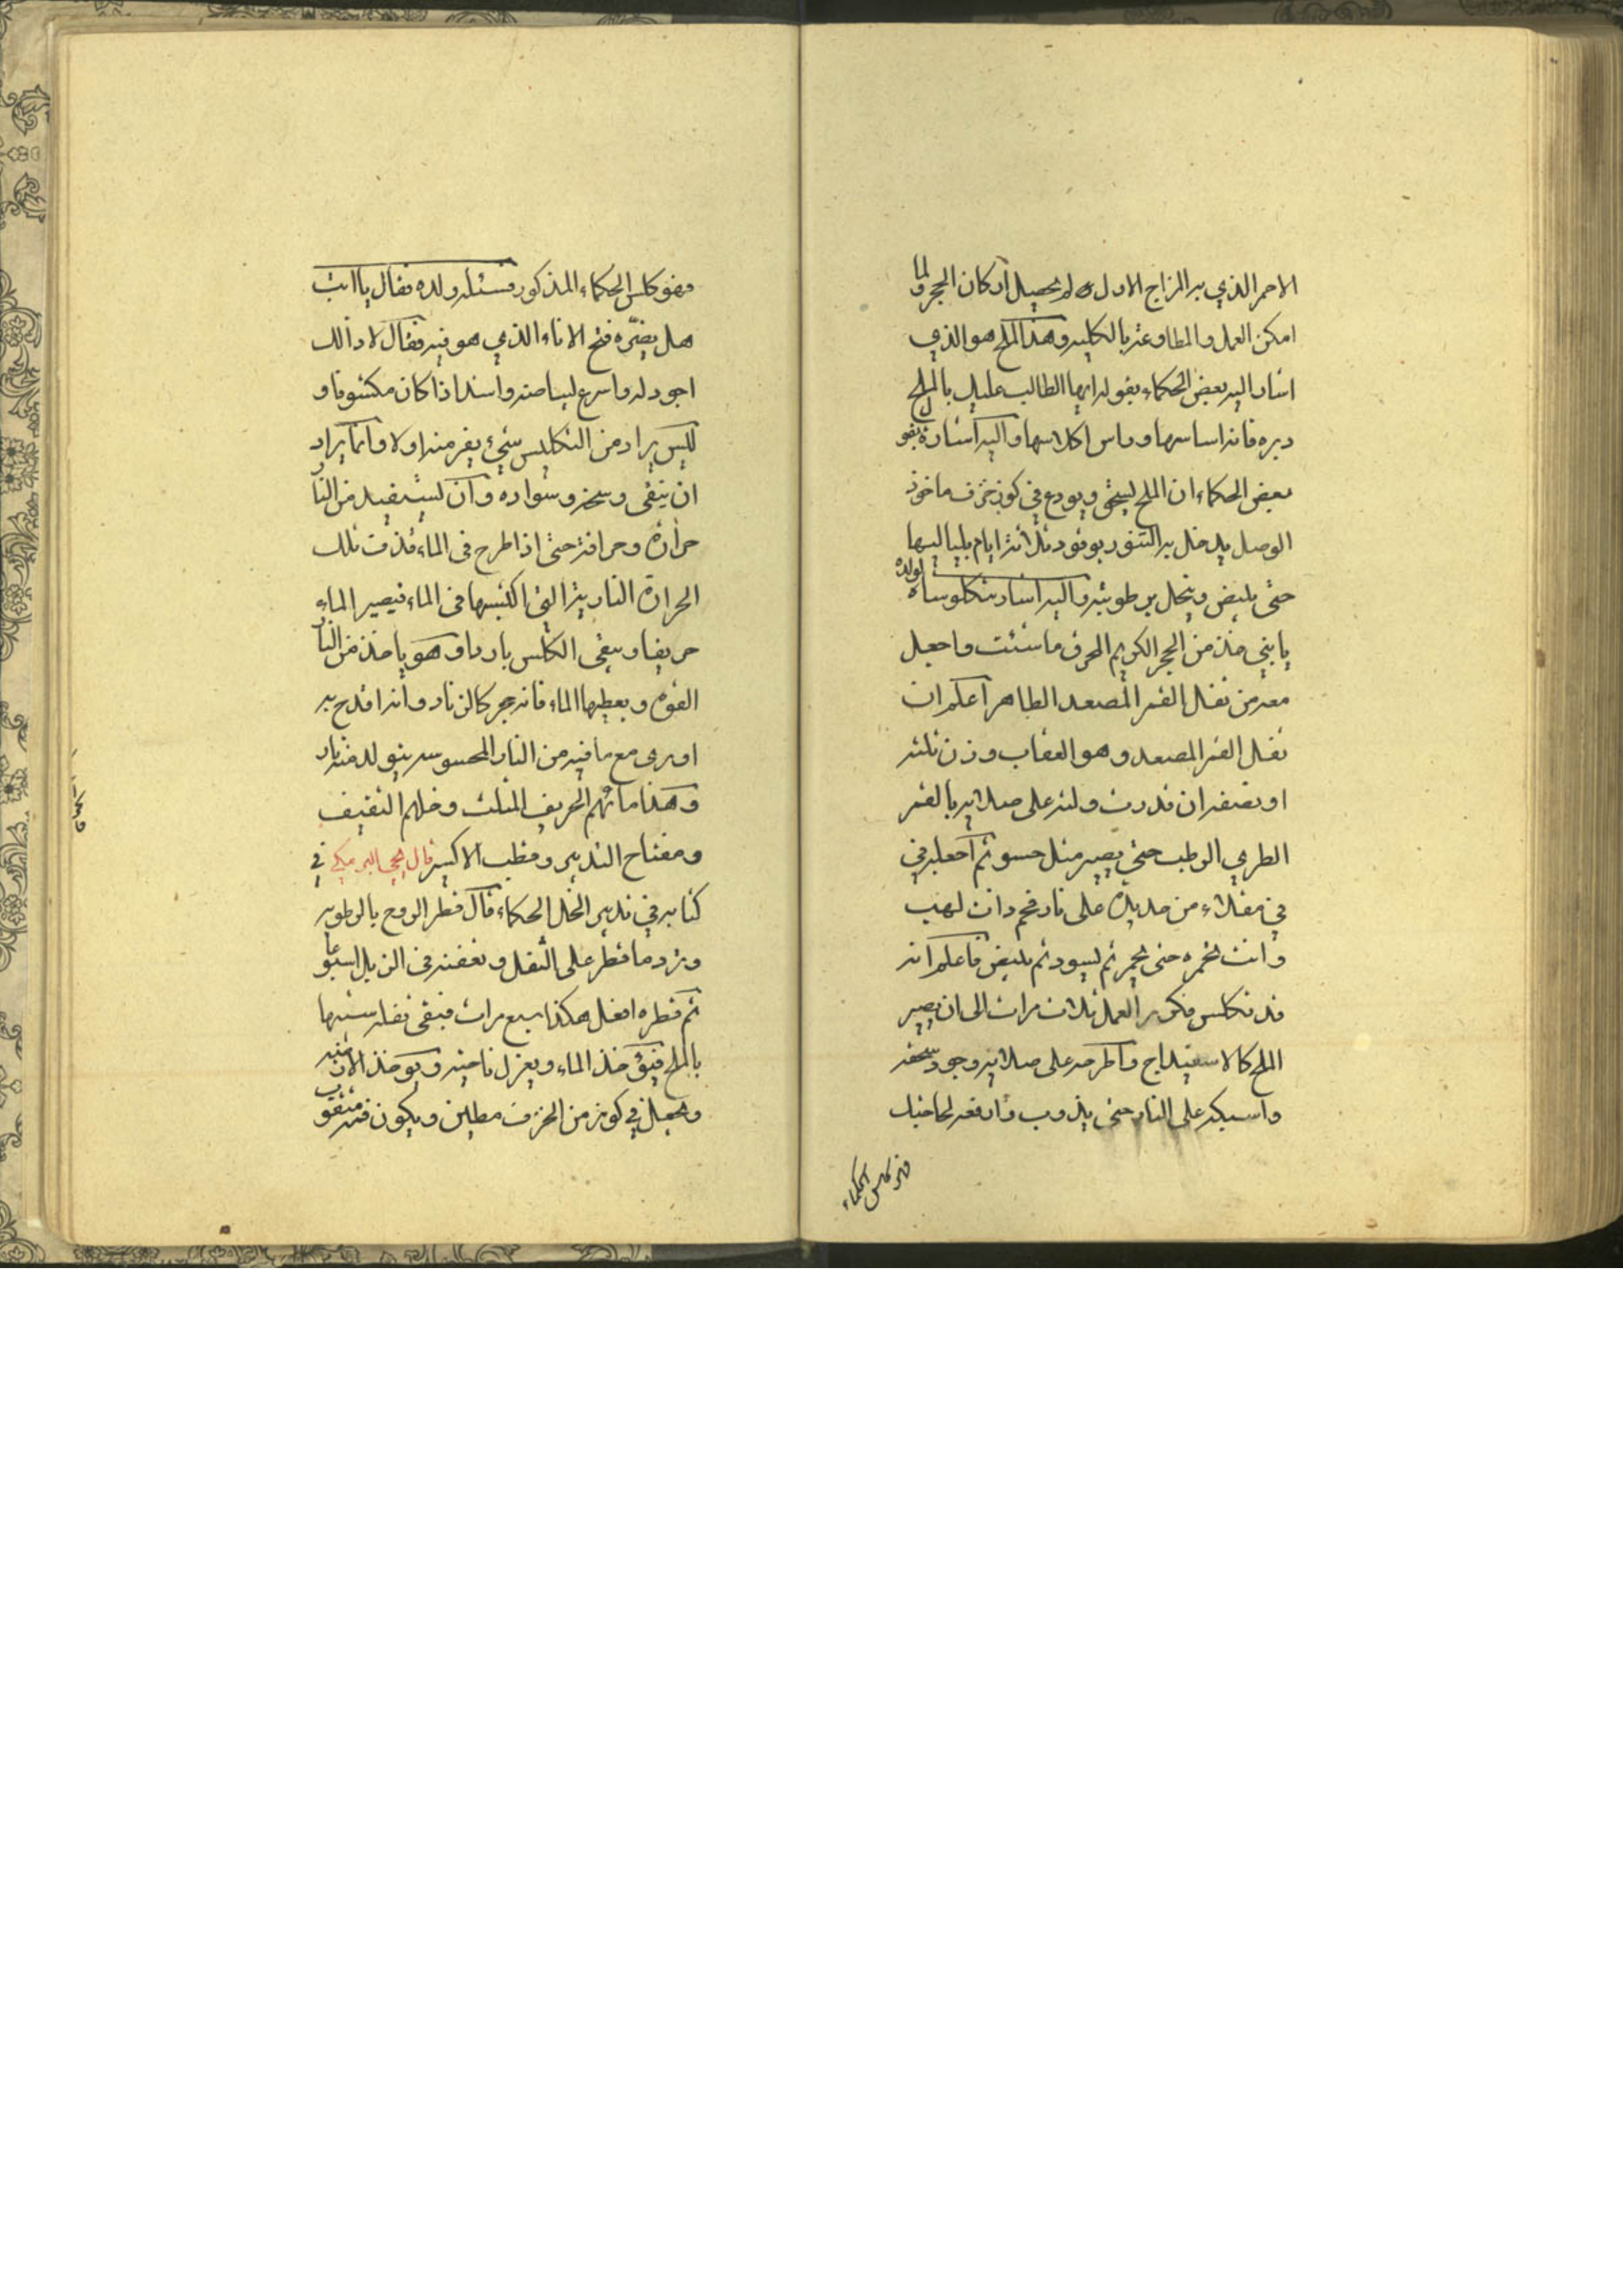 الاحمر الذي به المزاج الاول ولم يحصل اركان الحجر ولما
امكن العمل والمطاوعة بالكلية وهذا الملح هو الذي
اشار اليه بعض الحكماء بقوله ايها الطالب عليك بالملح
دبره فانه اساسها وراس اكلاسها واليه اشارة بقول
بعض الحكماء ان الملح يسحق ويودع في كوز خزف ماخوذ
الوصل يدخل به التنور بوقود ثلاثة ايام بلياليها
حتى يبيض وينحل برطوبته واليه اشار تنكلوشاه لولده
يا بني خذ من الحجر الكريم المحرق ما شئت واجعل
معه من ثفل القمر المصعد الطاهر اعلم ان
ثفل القمر المصعد وهو العقاب وزن ثلثه
او نصفه ان قدرت ولته على صلاية بالقمر
الطري الرطب حتى يصير مثل حسو ثم اجعله في
في مقلاء من حديدة على نار فحم ذات لهب
وانت تحمره حتى يحمر ثم يسود ثم يبيض فاعلم انه
قد تكلس فكرر العمل ثلاث مرات الى ان يصير
الملح كالاسفيداج واطرحه على صلاية وجود سحقه
واسبكه على النار حتى يذوب وارفعه لحاجتك
فهو كلس الحكماء
فهو كلس الحكماء المذكور فسئله ولده فقال يا ابت
هل يضره فتح الاناء الذي هو فيه فقال لا ذالك
اجود له واسرع لبياضه واشد اذا كان مكشوفا و
ليس يراد من التكليس شيء يفر منه اولا وانما يراد
ان ينقى وسخه وسواده وان يستفيد من النار
حرارة وحرافة حتى اذا طرح في الماء قذفت تلك
الحرارة النارية التي اكتسبها في الماء فيصير الماء
حريفا ويبقى الكلس باردا وهو ياخذ من النار
القوة ويعطيها الماء فانه حجر كالزناد وانه اقدح به
اورى مع ما فيه من النار المحسوسة يتولد منه نار
وهذا مائهم الحريف المثلث وخلهم الثقيف
ومفتاح التدبير وقطب الاكسير قال يحيى البرمكي في
كتابه في تدبير الخل الحكماء قال قطر الروح بالرطوبة
وترد ما قطر على الثفل وتعفنه في الزبل اسبوعا
ثم قطره افعل هكذا سبع مرات فيبقى ثفله شبيها
بالملح خذ الماء ويعزل ناحية ويوخذ الاثنيه
ويجعل في كوز من الخزف مطين ويكون فمه مثقوب